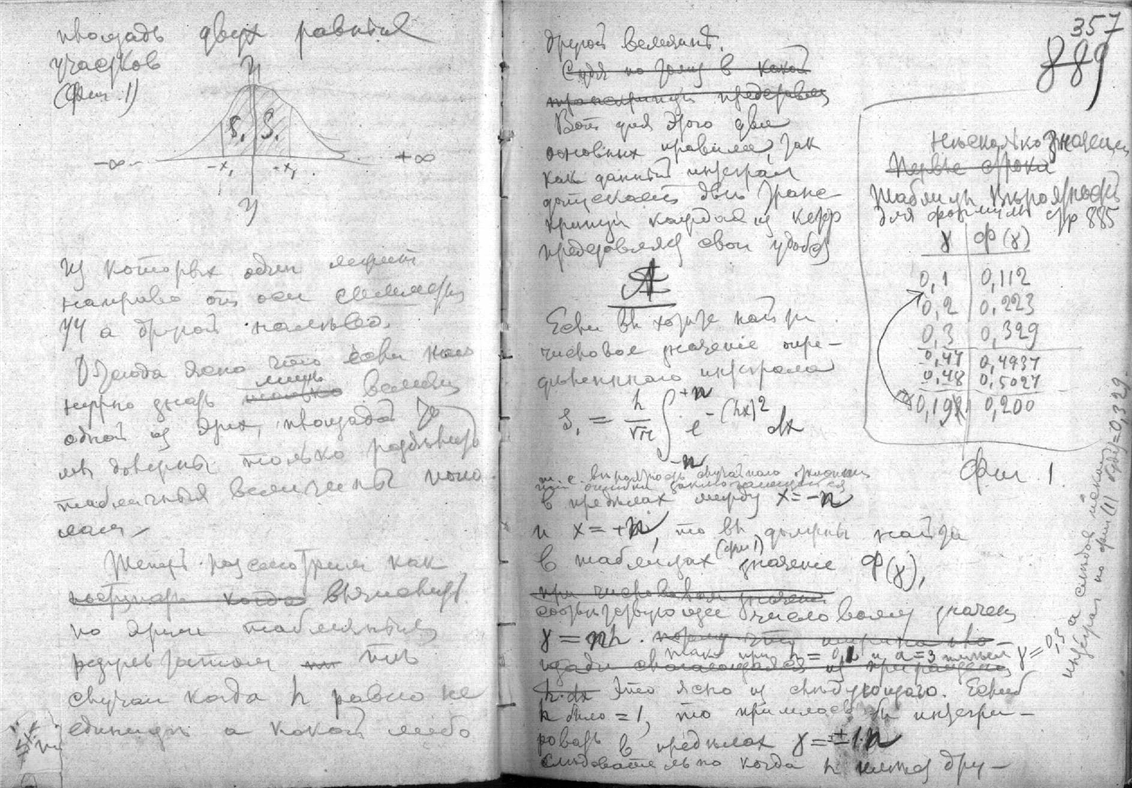 площадь двух равных
участков
(Фиг. 1)
y
S₁ S₁
-∞ -x₁ +x₁ +∞
y
из которых один лежит
направо от оси симметріи
yy а другой налѣво.
Отсюда ясно что если нам
нужно знать лишь величину
одной из этих площадей то
мы должны только раздѣлить
табличныя величины попо-
лам
Теперь разсмотрим как
поступать когда вычислять
по этим табличным
результатам
случаи когда h равно не
единицѣ а какой либо
357
889
другой величинѣ.
Вот для этого два
основных правила, так
как данный интеграл
допускает двѣ транс-
крипціи каждая из котор
представляет свои удобства
A
Если вы хотите найти
числовое значеніе опре-
дѣленнаго интеграла
S₁ = h/√π ∫₋ₙ⁺ⁿ e^-(hx)² dx
т. е. вѣроятность случайнаго
в предѣлах между x = -n
и x = +n, то вы должны найти
в таблицах (фиг 1) значеніе Φ(γ),
соотвѣтствующее числовому значен
γ = nh.
так при h = 0,1 и a = 3 имѣем γ = 0,3
а слѣдов искомый
интеграл по фиг 1 Φ(γ) = 0,329
Это ясно из слѣдующаго. Если б
h было = 1, то пришлось бы интегри-
ровать в предѣлах γ = ±1·n
слѣдовательно когда h имѣет дру-
Нѣсколько значений
Первые строки
Таблицы Вѣроятностей
для формулы стр 885
γ Φ(γ)
0,1 0,112
0,2 0,223
0,3 0,329
0,47 0,4937
0,48 0,5027
0,191 0,200
Фиг. 1.